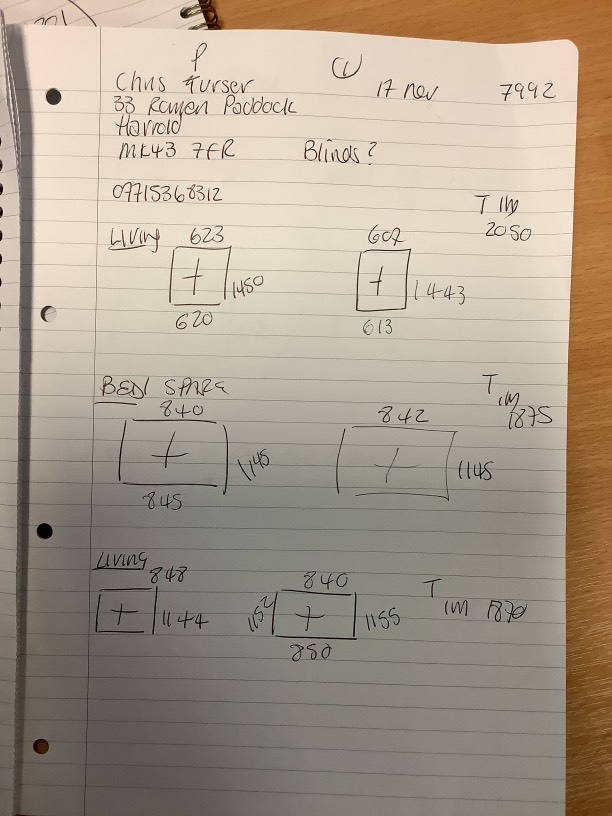 P (1)
Chris Turser 17 nov 7992
33 Paddock
Harrold
MK43 7FR Blinds?
07715368312
T IM
2050
LIVING 623 602
1450 1443
620 613
BED/ SPARE T IM
840 842 1875
1145 1145
845
LIVING
848 840 T IM 1870
1144 1152 1155
850